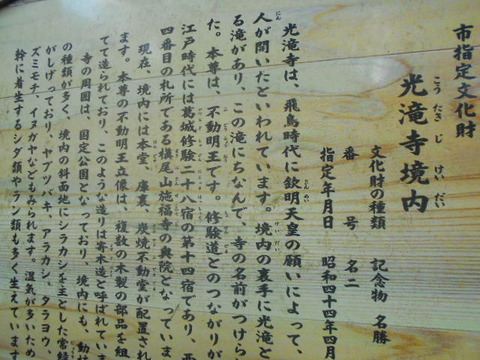 市指定文化財
光滝寺境内
こうたきじけいだい
文化財の種類 記念物 名勝
番号 名二
指定年月日 昭和四十四年四月
光滝寺は、飛鳥時代に欽明天皇の願いによって、
人が開いたといわれています。境内の裏手に光滝と
る滝があり、この滝にちなんで、寺の名前がつけら
た。本尊は、不動明王です。修験道とのつながりが
江戸時代には葛城修験二十八宿の第十四宿であり、西
四番目の札所である槇尾山施福寺の奥院となってい
現在、境内には本堂、庫裏、炭焼不動堂が配置され
ます。本尊の不動明王立像は、複数の木製の部品を組
てて造られており、このような造りは寄木造と呼ばれてい
寺の周囲は、国定公園となっており、境内にも、動
の種類が多く、境内の斜面地にシラカシを主とした常緑
がしげっており、ヤブツバキ、アラカシ、タラヨウ、
ズミモチ、イヌガヤなどもみられます。湿気が多いため
幹に着生するシダ類やラン類も多く生えています